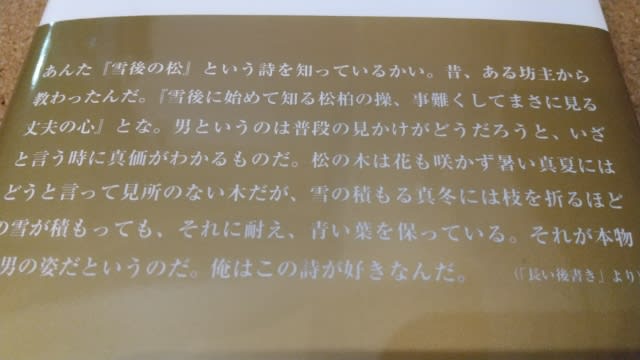 あんた『雪後の松』という詩を知っているかい。昔、ある坊主から
教わったんだ。『雪後に始めて知る松柏の操、事難くしてまさに見る
丈夫の心』とな。男というのは普段の見かけがどうだろうと、いざ
と言う時に真価がわかるものだ。松の木は花も咲かず暑い真夏には
どうと言って見所のない木だが、雪の積もる真冬には枝を折るほど
の雪が積もっても、それに耐え、青い葉を保っている。それが本物
男の姿だというのだ。俺はこの詩が好きなんだ。 (「長い後書き」より)